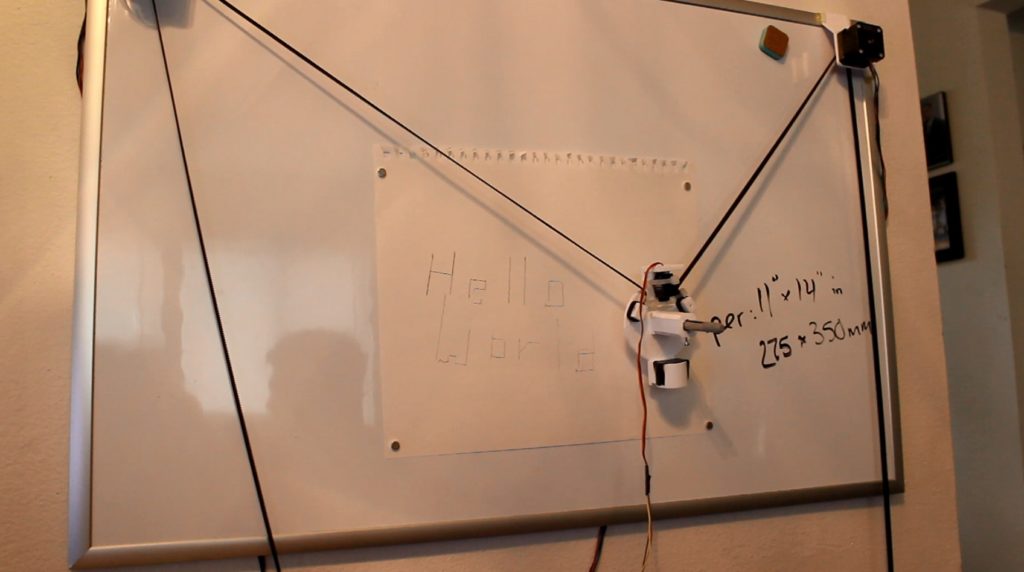 Hello
World
per: 11" x 14" in
275 x 350mm